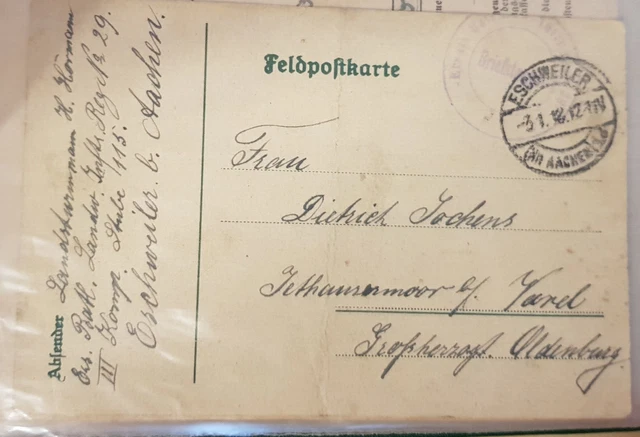 Feldpostkarte
ESCHWEILER
-3.1.18.12-1N
(KR AACHEN)
Frau
Dietrich Jochens
Jethausermoor b/ Varel
Großherzogt. Oldenburg.
Absender Landsturmmann H. Hörmann
Ers. Batl. Landw. Inftr. Reg. No 29.
III Komp. Stube 115.
Eschweiler b. Aachen.